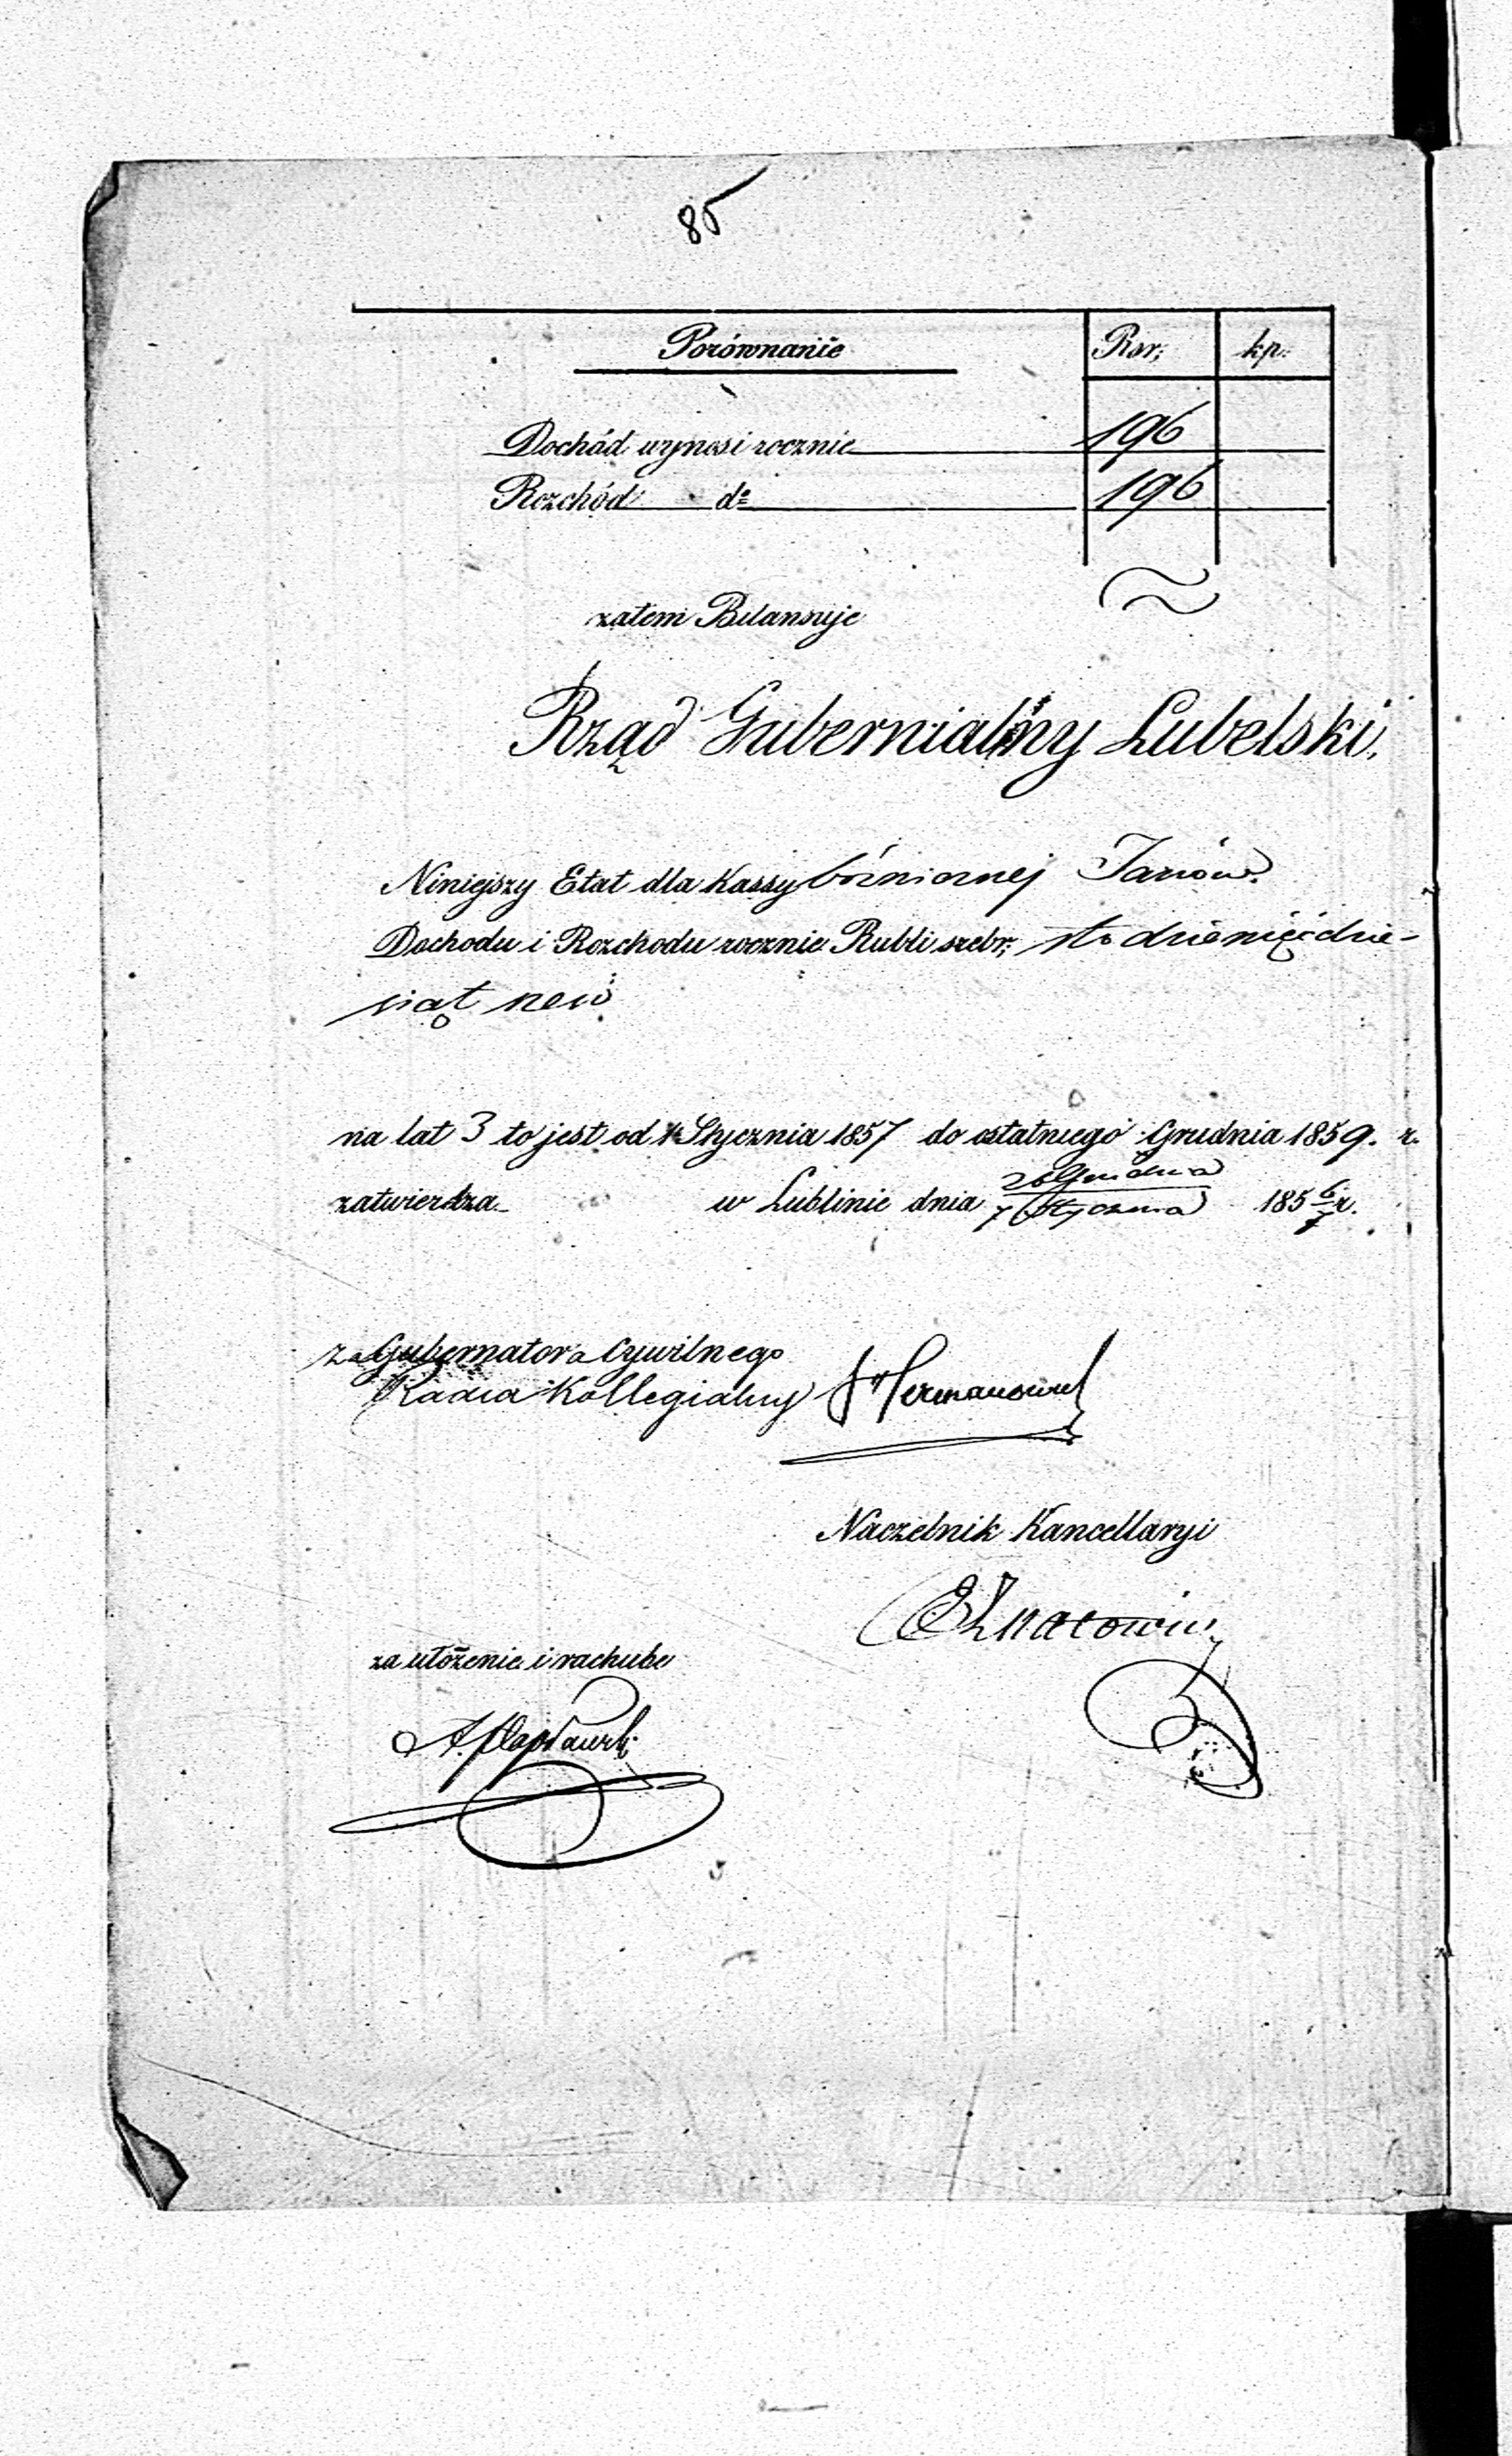 85
Porównanie Rsr, kp.
Dochód wynosi rocznie 196
Rozchód do 196
zatem Bilansuje
Rząd Gubernialny Lubelski,
Niniejszy Etat dla Kassy bóżnicznej Janów
Dochodu i Rozchodu rocznie Rubli srebr, sto dziewięćdzie-
siąt sześć
na lat 3 to jest od 1 Stycznia 1857 do ostatniego Grudnia 1859. r.
zatwierdza w Lublinie dnia 26 Grudnia / 7 Stycznia 185 6/7 r.
za Gubernatora Cywilnego
Radca Kollegialny
Naczelnik Kancellaryi
za ułożenie i rachubę